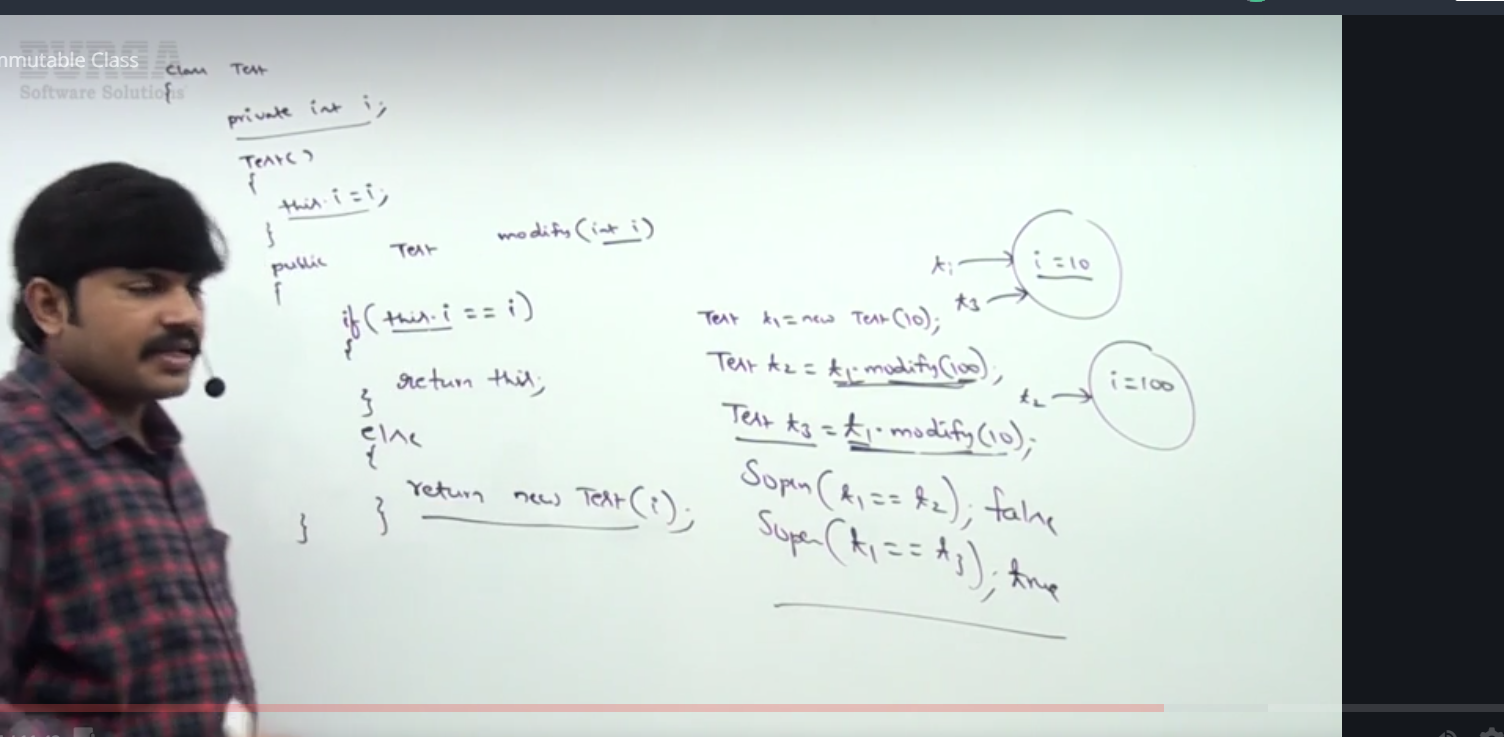 mmutable Class
DURGA
Software Solutions
class Test
{
private int i;
Test()
{
this.i = i;
}
public Test modify(int i)
{
if(this.i == i)
{
return this;
}
else
{
return new Test(i);
}
}
t1
i = 10
t3
Test t1 = new Test(10);
Test t2 = t1.modify(100);
t2
i = 100
Test t3 = t1.modify(10);
Sopln(t1 == t2); false
Sopln(t1 == t3); true